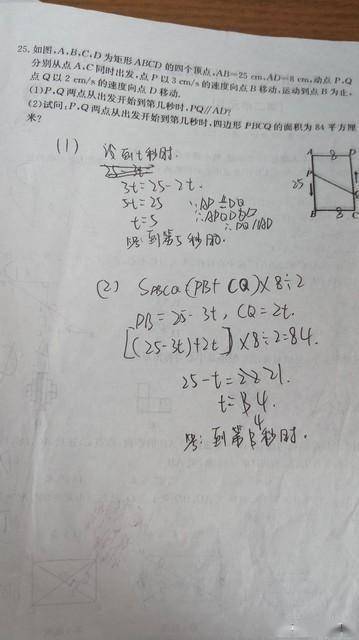 25. 如图,A,B,C,D 为矩形 ABCD 的四个顶点,AB=25 cm,AD=8 cm,动点 P,Q
分别从点 A,C 同时出发,点 P 以 3 cm/s 的速度向点 B 移动,运动到点 B 为止,
点 Q 以 2 cm/s 的速度向点 D 移动.
(1)P,Q 两点从出发开始到第几秒时,PQ∥AD?
(2)试问:P,Q 两点从出发开始到第几秒时,四边形 PBCQ 的面积为 84 平方厘
米?
(1) 设到t秒时.
3t=25-2t.
5t=25 ∵AP DQ
t=5 ∴APQD
∴PQ//AD
答:到第5秒时.
A 8 D
P
25
Q
B 8 C
(2) SPBCQ=(PB+CQ)×8÷2
PB=25-3t, CQ=2t.
[(25-3t)+2t]×8÷2=84.
25-t=21.
t=4.
4
答:到第 秒时.